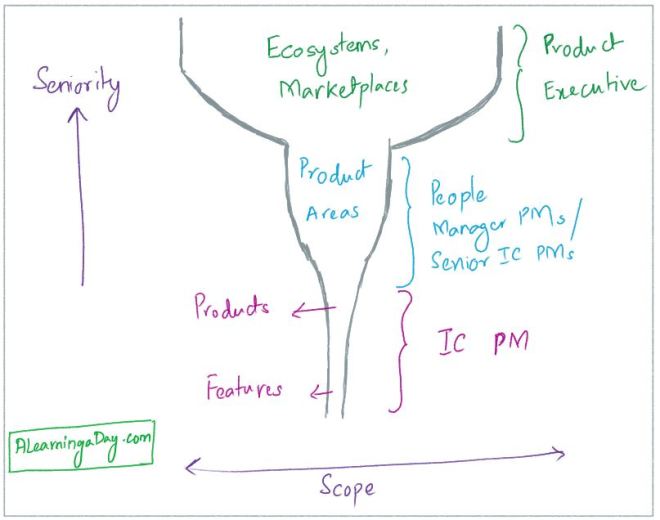 Ecosystems,
Marketplaces
Product
Executive
Seniority
Product
Areas
People
Manager PMs/
Senior IC PMs
Products
Features
IC PM
ALearningaDay.com
Scope